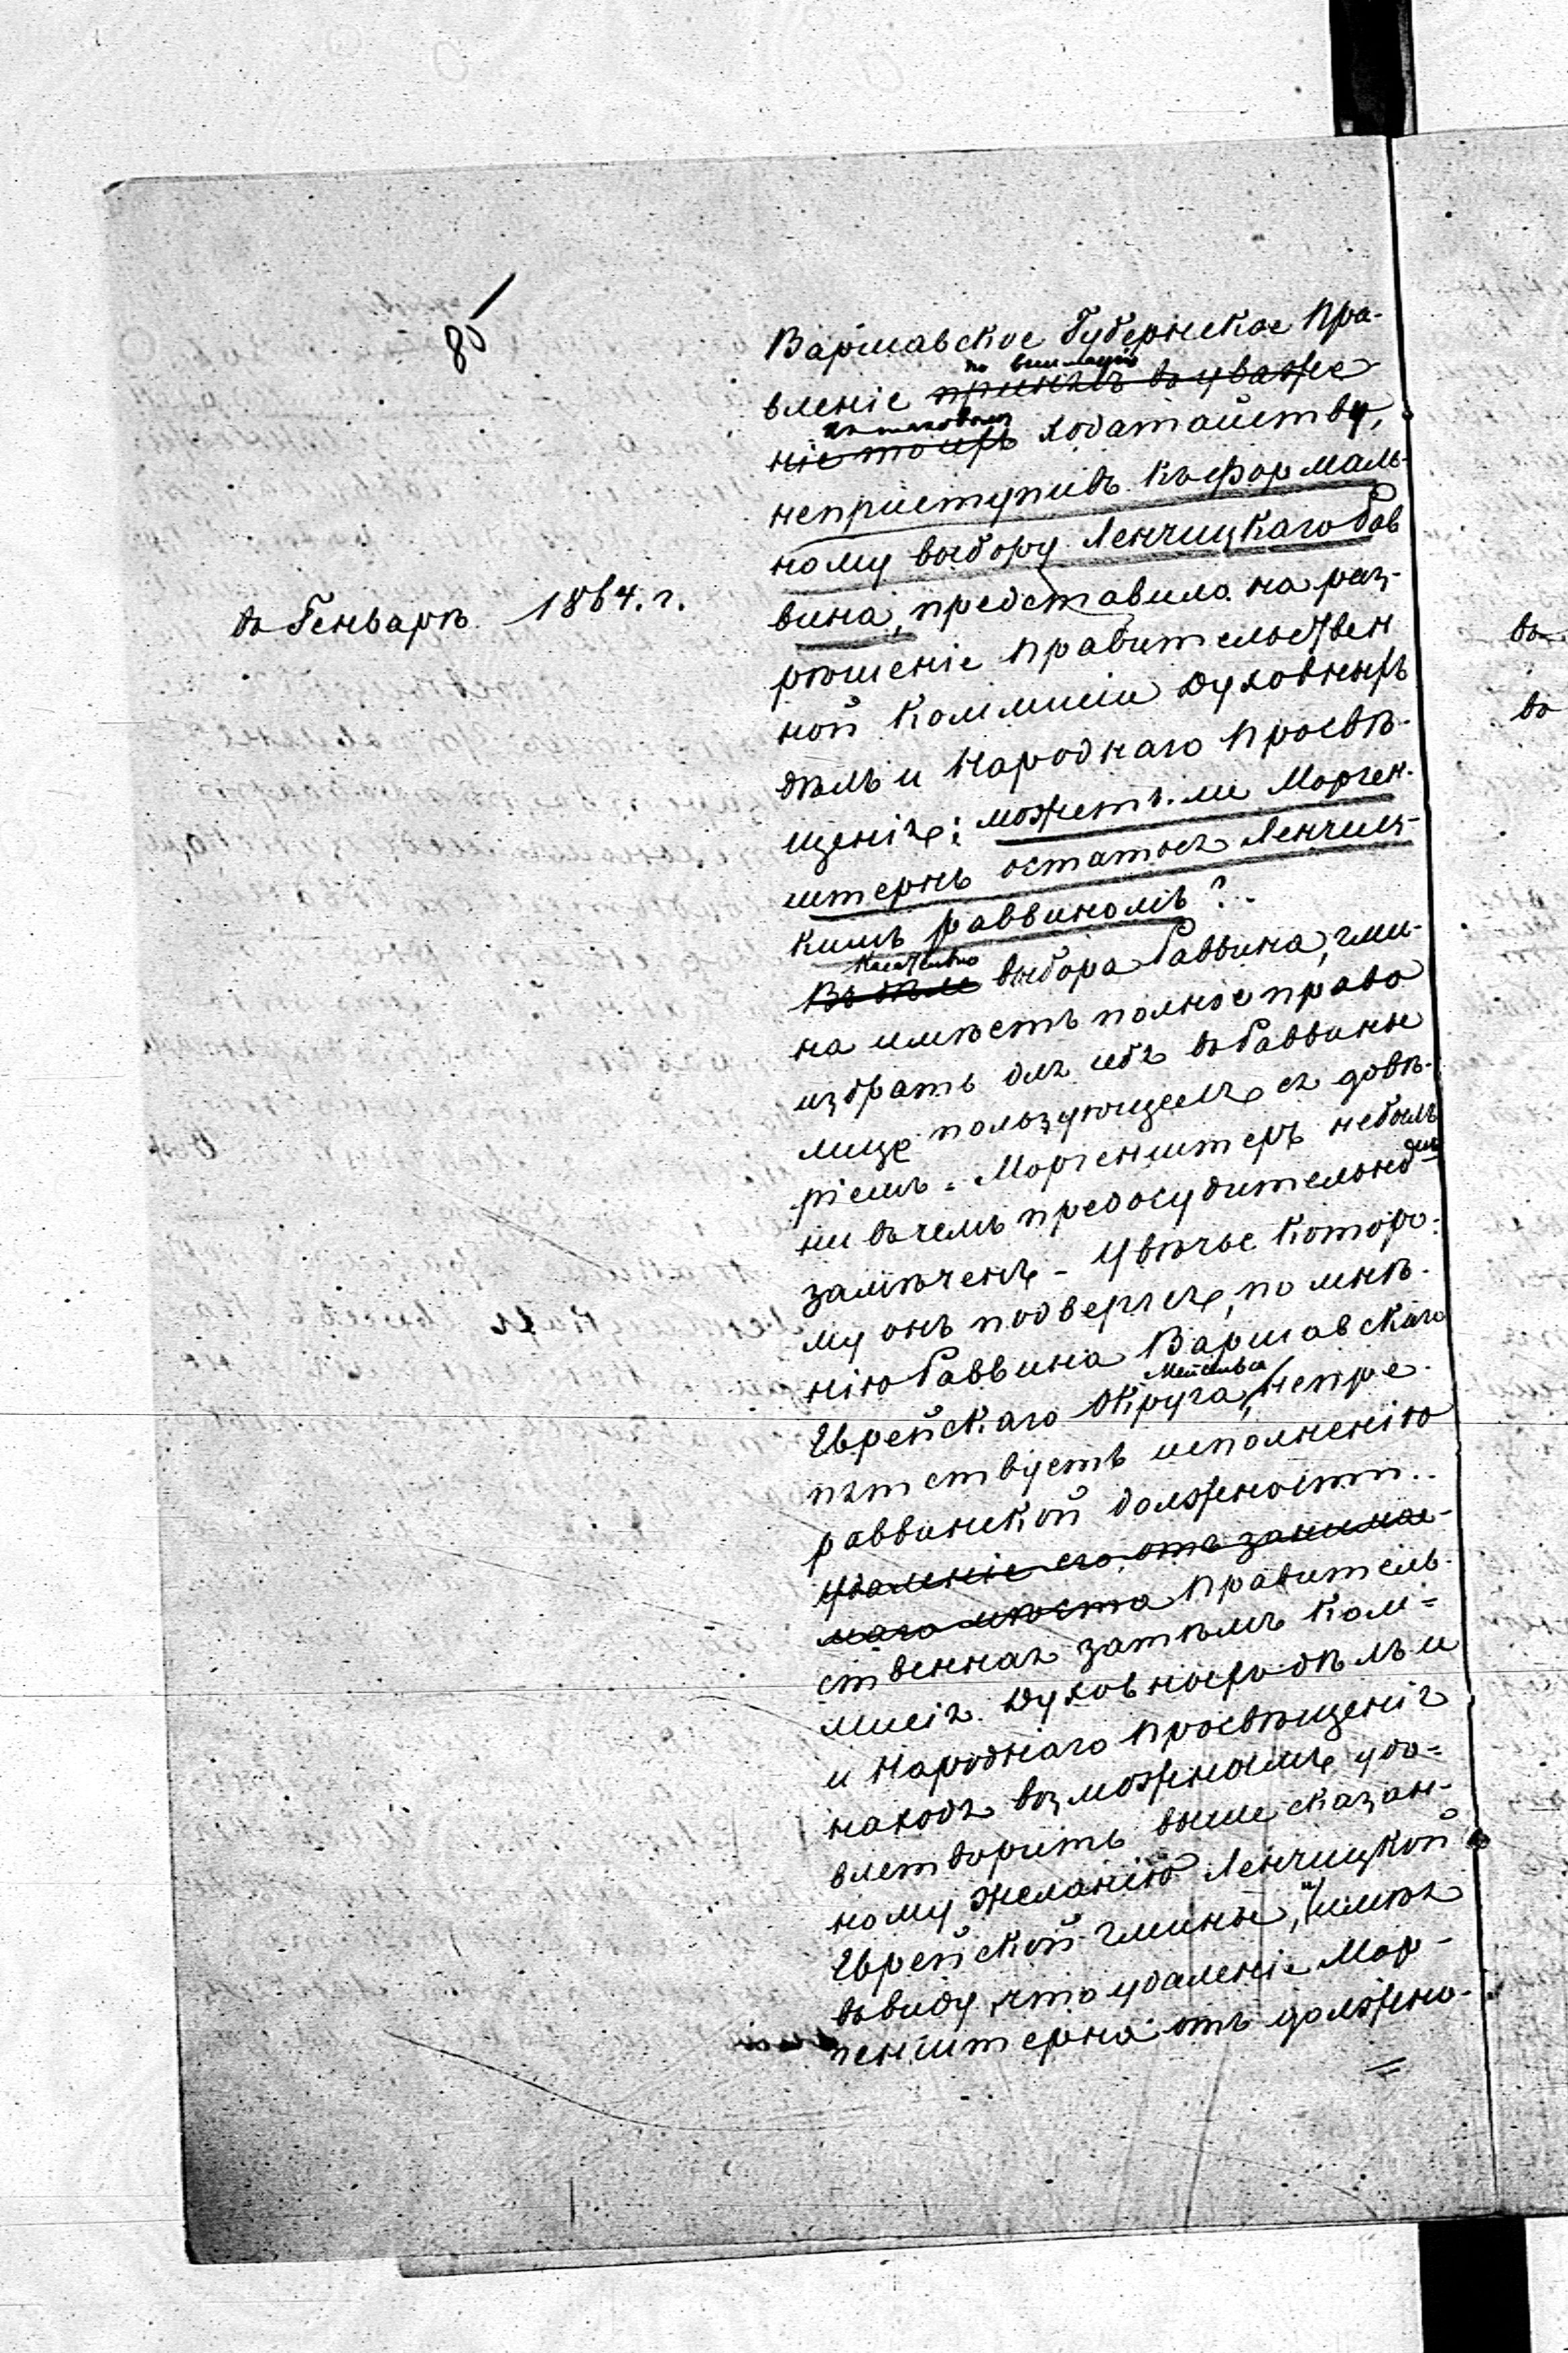 8
въ Генварѣ 1864. г.
Варшавское Губернское Пра-
по вниманію
вленіе принявъ въ уваже
къ таковому
ніе ходатайству,
неприступивъ къ формаль-
ному выбору Ленчицкаго Рав
вина, представило на раз-
рѣшеніе Правительствен
ной Коммисіи Духовныхъ
дѣлъ и Народнаго Просвѣ-
щенія: можетъ-ли Морген-
штернъ остаться Ленчиц-
кимъ раввиномъ?
Касательно
Въ дѣлѣ выбора Раввина, гми-
на имѣетъ полное право
избрать для себя въ Раввины
лице пользующееся довѣ-
ріемъ. Моргенштернъ небылъ
ни въ чемъ предосудительномъ
замѣченъ - Увѣчье которо-
му онъ подвергся, по мнѣ-
нію Раввина Варшавскаго
Мейсельса
Еврейскаго Округа, непре
пятствуетъ исполненію
раввинской должности..
Удаленіе его отъ занимае-
маго мѣста Правитель-
ственная затѣмъ Ком-
мисія Духовныхъ дѣлъ и
и Народнаго Просвѣщенія
находя возможнымъ удо-
влетворить выше сказан-
ному желанію Ленчицкой
Еврейской гмины, и имѣя
въ виду, что удаленіе Мор-
генштерна отъ должно-
въ
въ